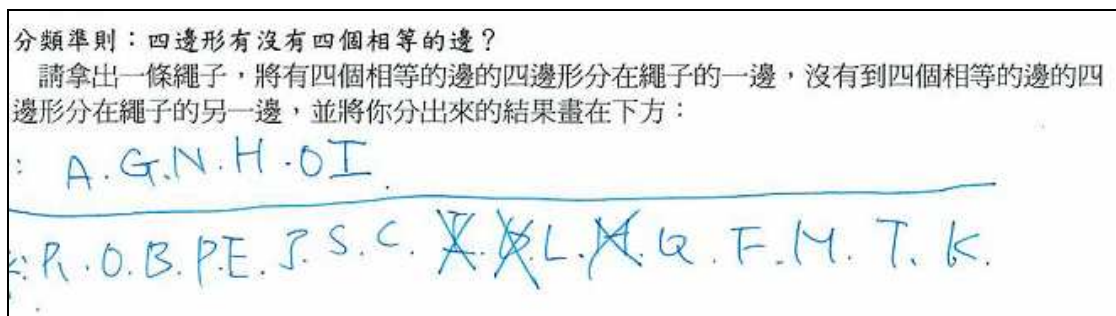 分類準則：四邊形有沒有四個相等的邊？
請拿出一條繩子，將有四個相等的邊的四邊形分在繩子的一邊，沒有到四個相等的邊的四
邊形分在繩子的另一邊，並將你分出來的結果畫在下方：
: A.G.N.H.OI.
R.O.B.P.E.J.S.C. L. Q.F.M.T.K.